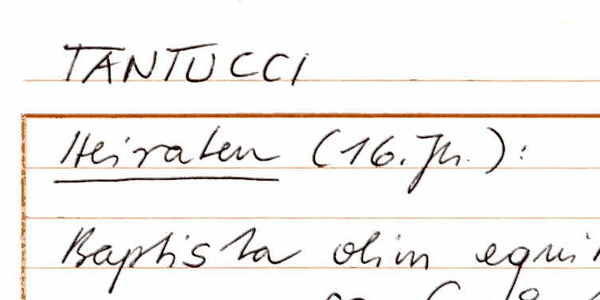 TANTUCCI
Heiraten (16. Jh.):
Baptista olim equi